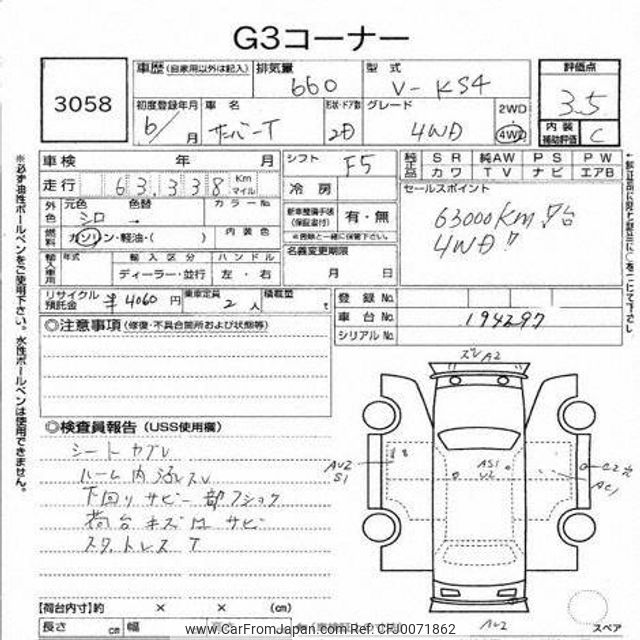 G3コーナー
3058
車歴 (自家用以外は記入) 排気量 660 型式 V-KS4
評価点 3.5
初度登録年月 6/ 月 車名 サンバーT 形状・ドア数 2D グレード 4WD 2WD 4WD
内装 補助評価 C
車検 年 月 シフト F5
純正品 SR 純AW PS PW
カワ TV ナビ エアB
走行 63,338 Km マイル 冷房
セールスポイント
63000Km!台
4WD!
外色 元色 シロ 色替 → カラーNo.
新車整備手帳 (保証書付) 有・無
燃料 ガソリン・軽油・( ) 内装色
名義変更期限
月 日
輸入車用 年式 輸入区分 ハンドル
ディーラー・並行 左・右
リサイクル預託金 半 4060 円 乗車定員 2 人 積載量 t
登録No.
車台No. 194297
シリアルNo.
◎注意事項 (修復・不具合箇所および状態等)
◎検査員報告 (USS使用欄)
シートヤブレ
ルーム内汚レスレ
下回りサビ一部フショク
荷台キズ凹サビ
スタットレスT
ズレA2
AU2
S1
AS1
U2
C2穴
AC1
AU2
スペア
【荷台内寸】約 × × (cm)
長さ cm 幅 高さ
※必ず油性ボールペンをご使用下さい。水性ボールペンは使用できません。
www.CarFromJapan.com Ref:CFJ0071862